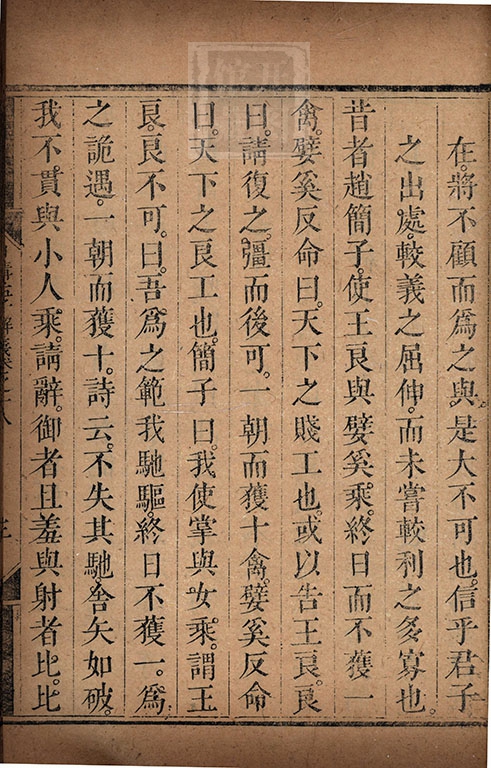 在。將不顧而爲之與。是大不可也。信乎君子
之出處。較義之屈伸。而未嘗較利之多寡也。
昔者趙簡子。使王良與嬖奚乘。終日而不獲一
禽。嬖奚反命曰。天下之賤工也。或以告王良。良
曰。請復之。彊而後可。一朝而獲十禽。嬖奚反命
曰。天下之良工也。簡子曰。我使掌與女乘。謂王
良。良不可。曰。吾爲之範我馳驅。終日不獲一。爲
之詭遇。一朝而獲十。詩云。不失其馳。舍矢如破。
我不貫與小人乘。請辭。御者且羞與射者比。比